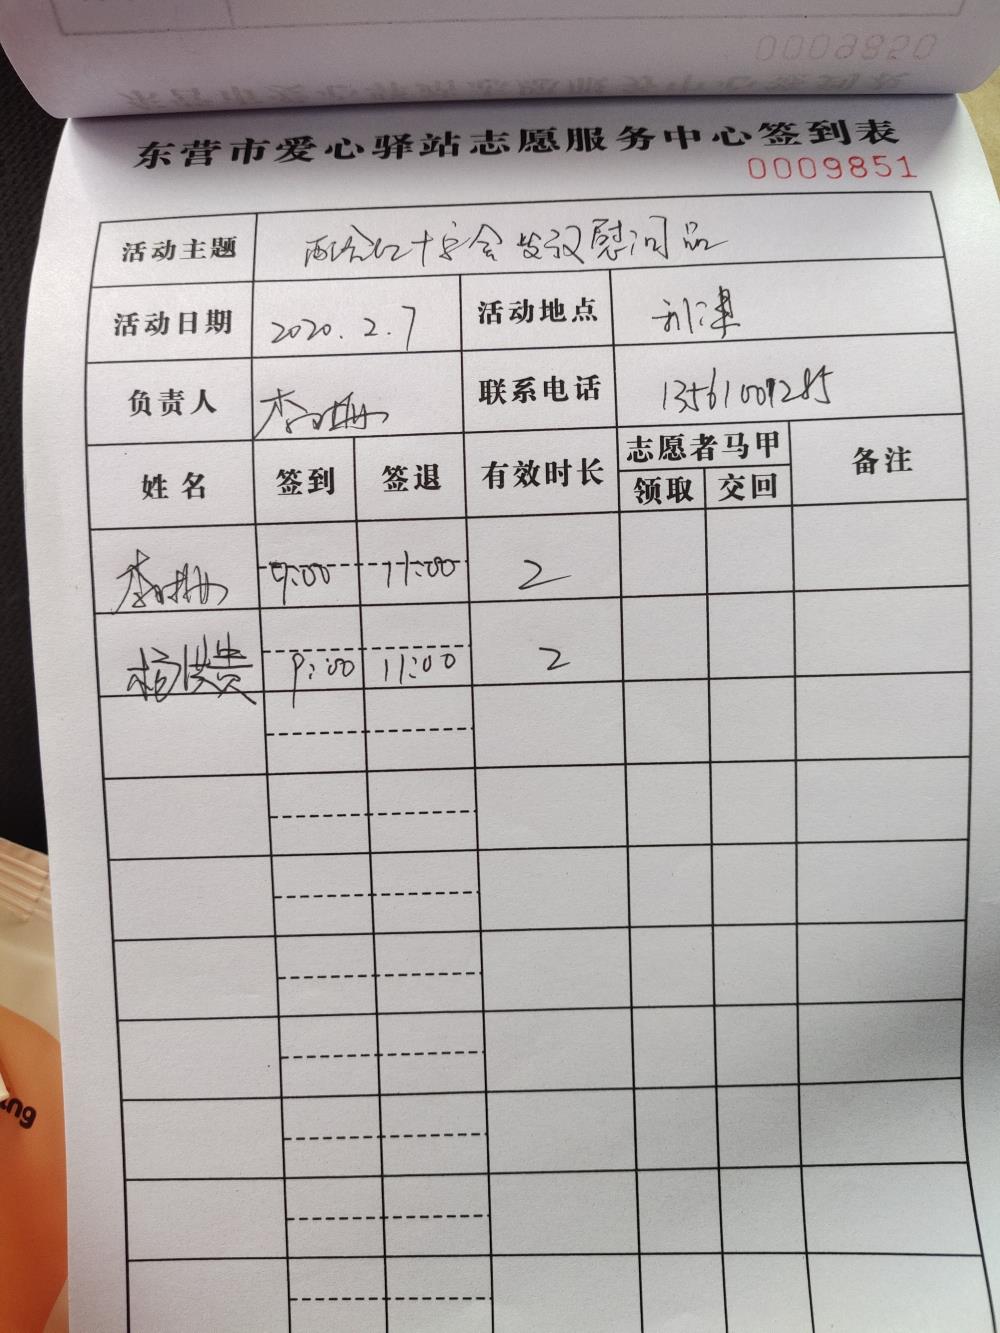 0009850
东营市爱心驿站志愿服务中心签到表
0009851
活动主题 配合红十字会发放慰问品
活动日期 2020.2.7 活动地点 利津
负责人 李 联系电话 13561009285
姓名 签到 签退 有效时长 志愿者马甲 备注
领取 交回
李 9:00 11:00 2
杨洪贵 9:00 11:00 2
ing